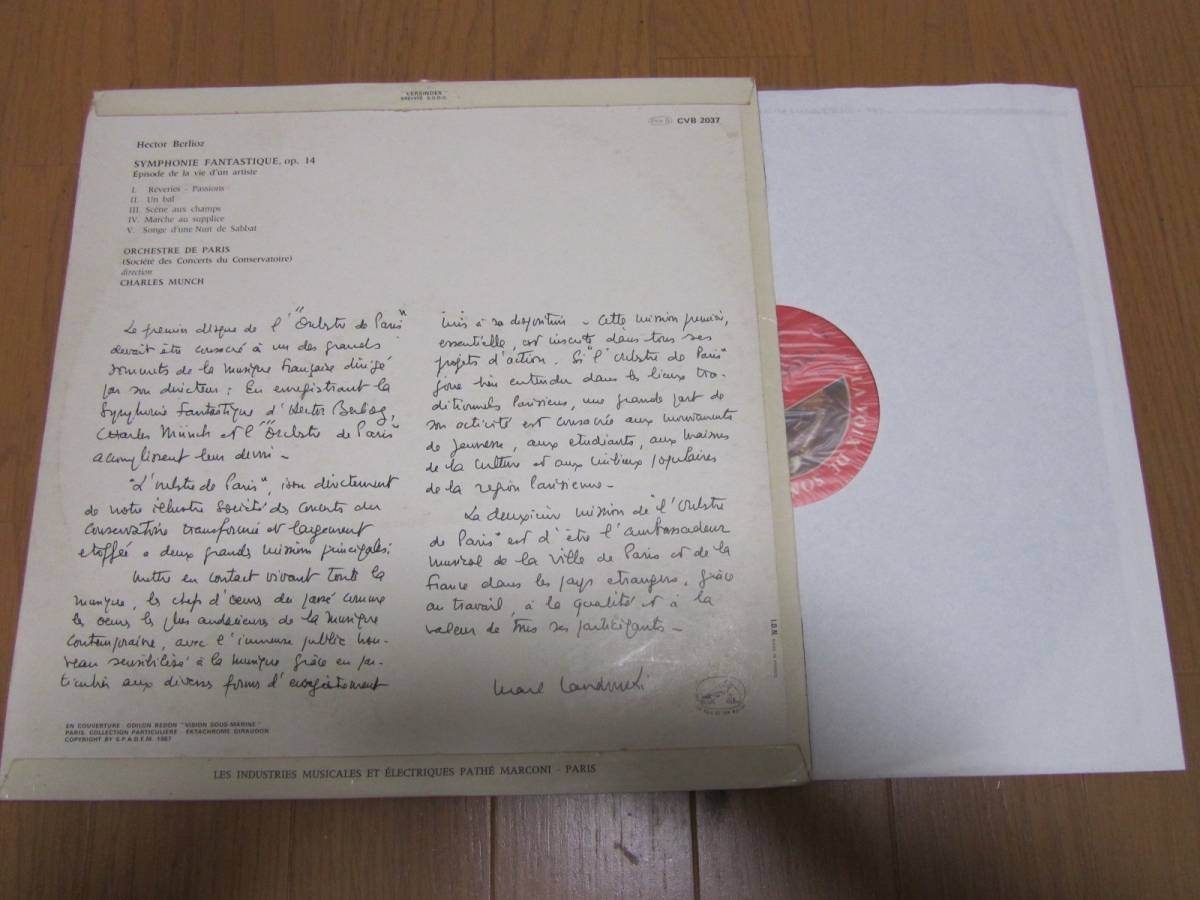 VERSINDEX
BREVETÉ S.G.D.G.
CVB 2037
Hector Berlioz
SYMPHONIE FANTASTIQUE, op. 14
Épisode de la vie d'un artiste
I. Rêveries - Passions
II. Un bal
III. Scène aux champs
IV. Marche au supplice
V. Songe d'une Nuit de Sabbat
ORCHESTRE DE PARIS
(Société des Concerts du Conservatoire)
direction
CHARLES MUNCH
Le premier disque de l'"Orchestre de Paris"
devait être consacré à un des grands
sommets de la musique française dirigé
par son directeur : En enregistrant la
Symphonie Fantastique d'Hector Berlioz,
Charles Münch et l'"Orchestre de Paris"
accomplissent leur devoir -
"L'Orchestre de Paris", issu directement
de notre illustre Société des concerts du
conservatoire transformée et largement
etoffée a deux grands missions principales:
Mettre en contact vivant toute la
musique, les chefs d'oeuvres du passé comme
les oeuvres les plus audacieuses de la musique
contemporaine, avec l'immense public nou-
veau sensibilisé à la musique grâce en par-
ticulier aux diverses formes d'enregistrement
mis à sa disposition - Cette mission première,
essentielle, est inscrite dans tous ses
projets d'action. Si "l'Orchestre de Paris"
se fera bien entendre dans les lieux tra-
ditionnels Parisiens, une grande part de
son activité est consacrée aux mouvements
de jeunesse, aux etudiants, aux maisons
de la culture et aux milieux populaires
de la region Parisienne -
La deuxième mission de "l'Orchestre
de Paris" est d'être l'ambassadeur
musical de la Ville de Paris et de la
France dans les pays etrangers, grâce
au travail, à la qualité et à la
valeur de tous ses participants -
Marcel Landowski
EN COUVERTURE : ODILON REDON "VISION SOUS-MARINE"
PARIS. COLLECTION PARTICULIÈRE - EKTACHROME GIRAUDON
COPYRIGHT BY S.P.A.D.E.M. 1967
LES INDUSTRIES MUSICALES ET ÉLECTRIQUES PATHÉ MARCONI - PARIS
LA VOIX DE SON